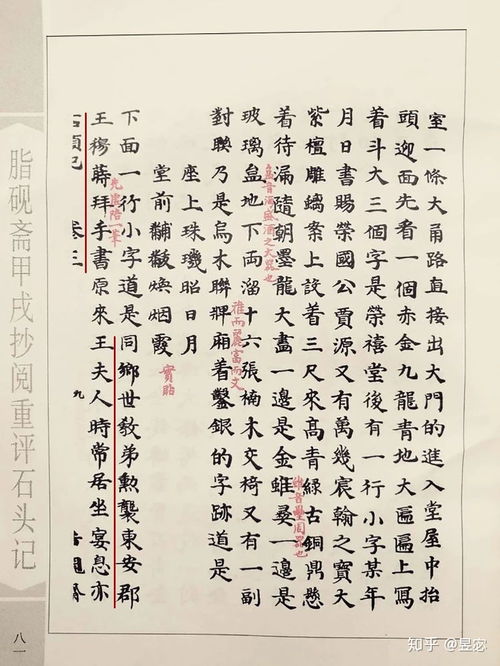 室一條大甬路直接出大門的進入堂屋中抬
頭迎面先看一個赤金九龍青地大遍遍上寫
着斗大三個字是榮禧堂後有一行小字某年
月日書賜榮國公賈源又有萬幾宸翰之寶大
紫檀雕螭案上設着三尺來高青綠古銅鼎懸
着待漏隨朝墨龍大畫一邊是金蜼彝一邊是
蜼音壘周器也
玻璃盒地下兩溜十六張楠木交椅又有一副
音海盛酒之大器也
對聯乃是烏木聯牌廂着鏨銀的字跡道是
雅而麗富而文
座上珠璣昭日月
堂前黼黻煥烟霞
實貼
下面一行小字道是同鄉世教弟勲襲東安郡
先虛陪一筆
王穆蒔拜手書原來王夫人時常居坐宴息亦
石頭記 卷三 九
脂砚斋甲戌抄阅重评石头记
八一
知乎 @昱宓